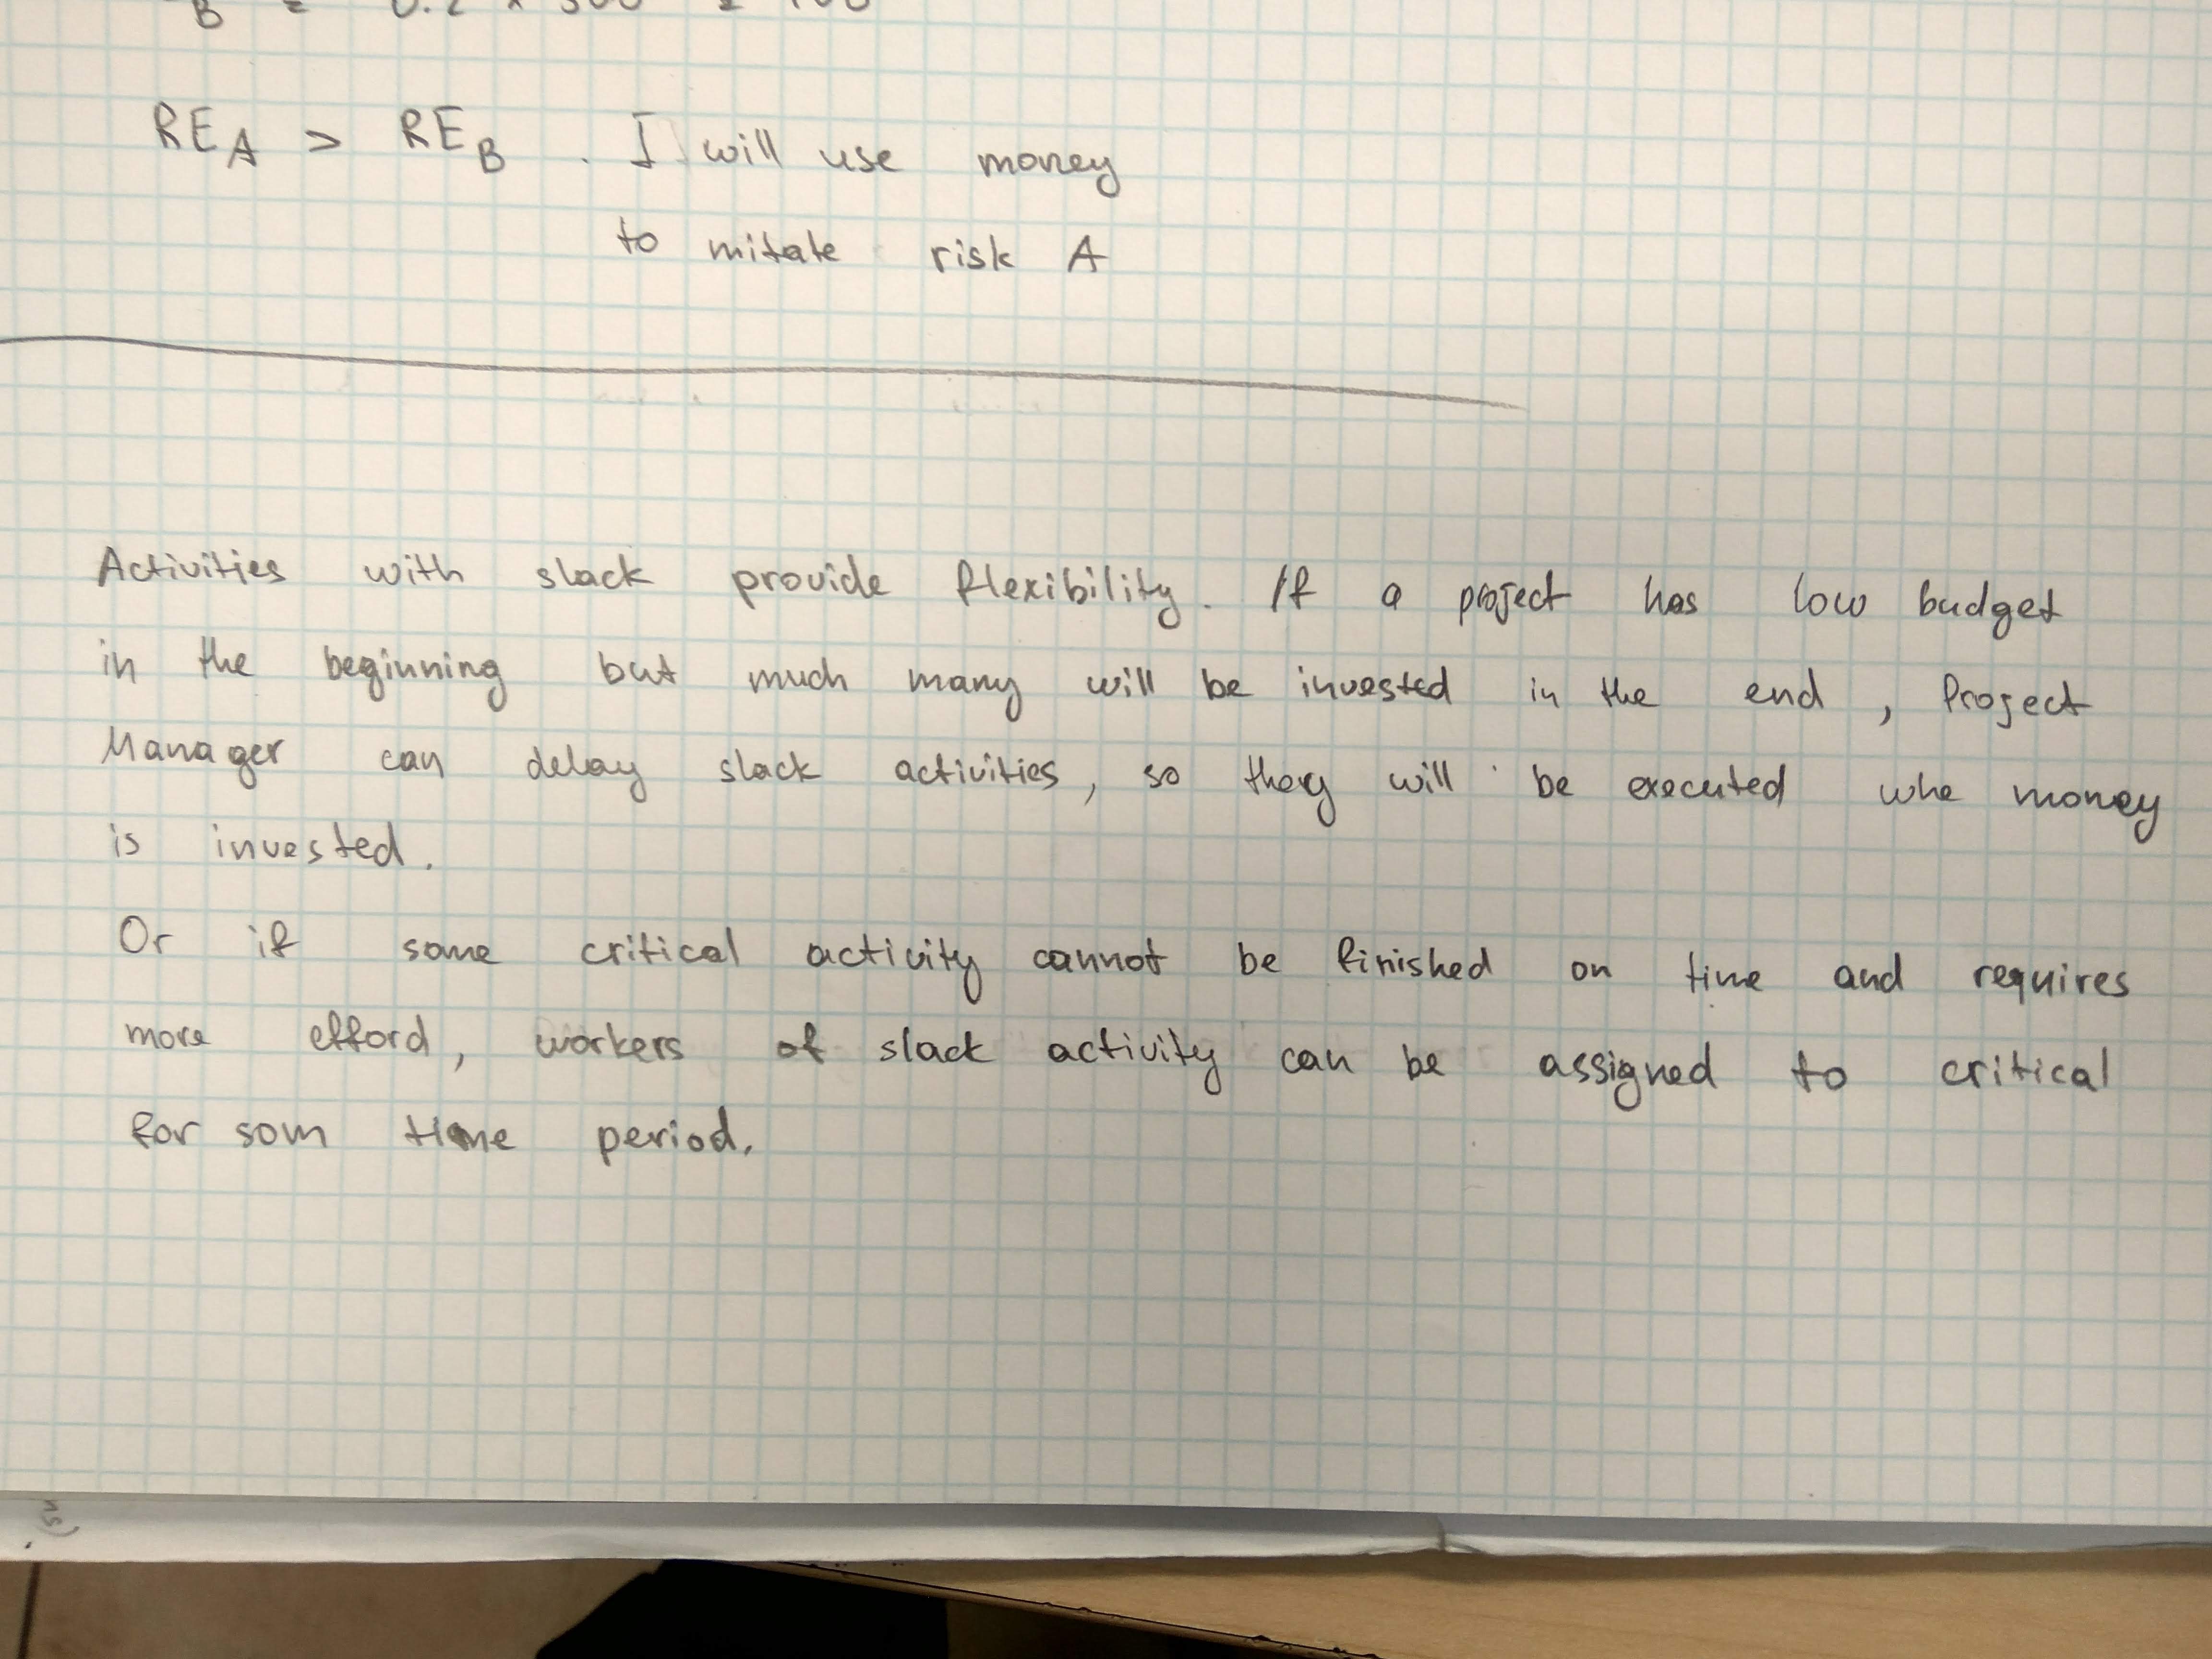 B = 0.2 × 500 = 100
RE_A > RE_B . I will use money
to mitate risk A
Activities with slack provide flexibility. If a project has low budget
in the beginning but much many will be invested in the end, Project
Manager can delay slack activities, so they will be executed whe money
is invested.
Or if some critical activity cannot be finished on time and requires
more efford, workers of slack activity can be assigned to critical
for som time period.